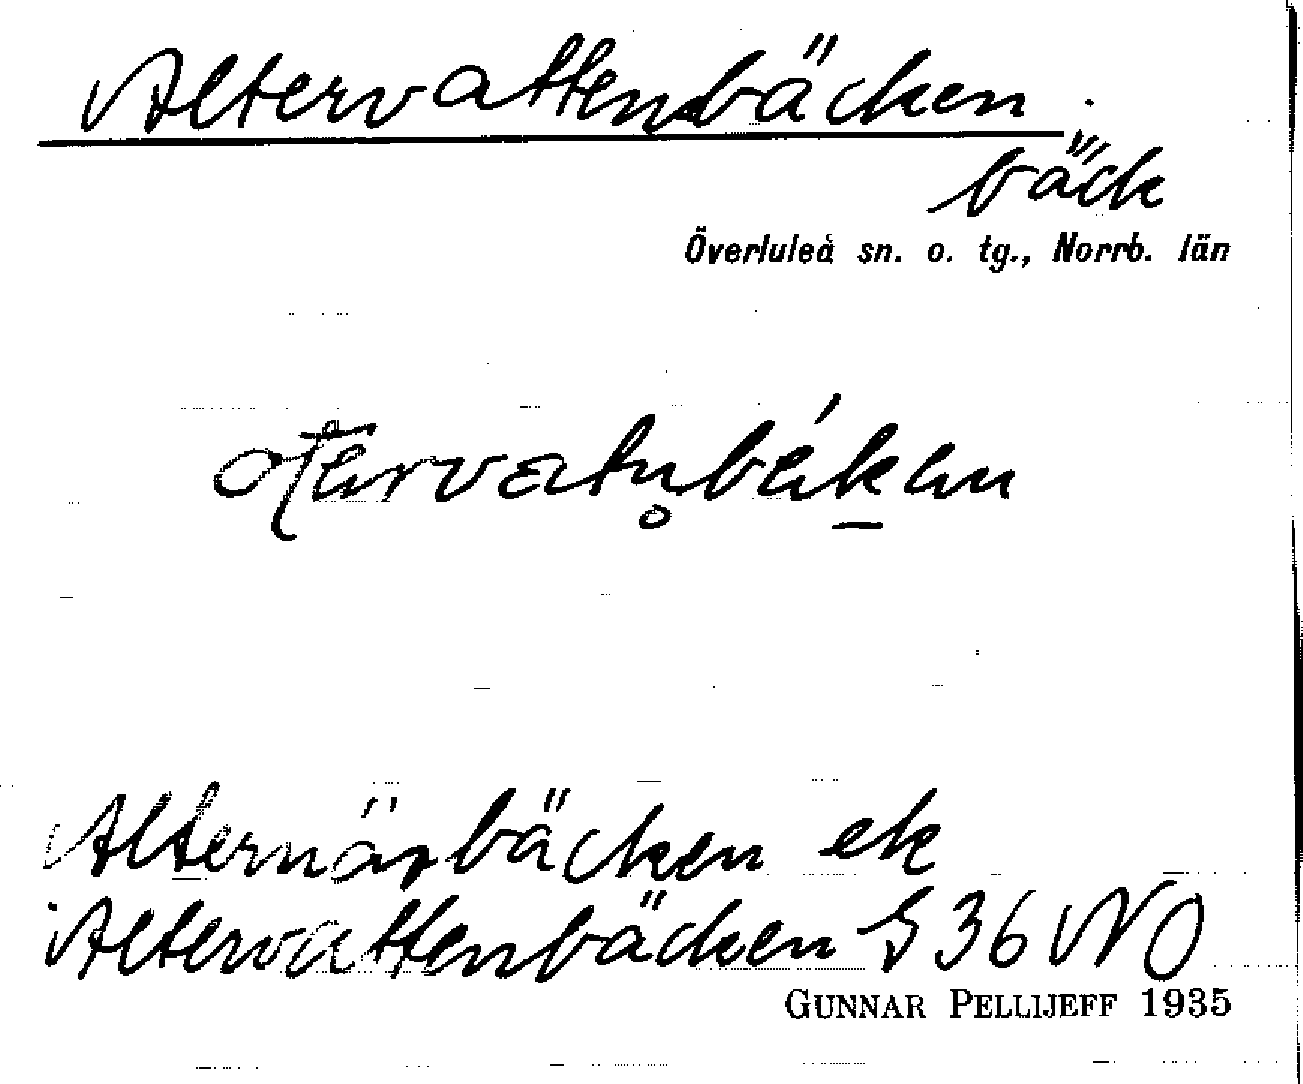 Altervattenbäcken.
bäck
Överluleå sn. o. tg., Norrb. län
Alternäsbäcken ek
Altervattenbäcken S 36 NO
GUNNAR PELLIJEFF 1935